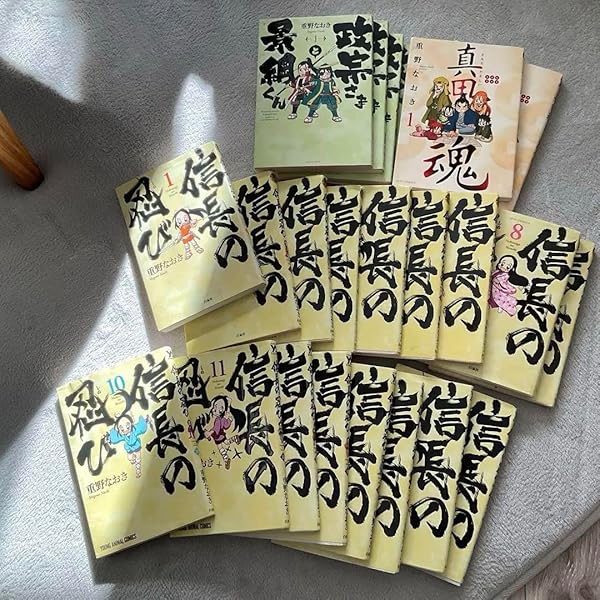 重野なおき
政宗さまと
景綱くん
1
政宗さま
重野なおき
真田魂
1
信長の
忍び
1
重野なおき
信長の
信長の
信長の
信長の
信長の
信長の
8
信長の
信長の
10
信長の
忍び
重野なおき
YOUNG ANIMAL COMICS
11
信長の
忍び
信長の
信長の
信長の
信長の
信長の
信長の